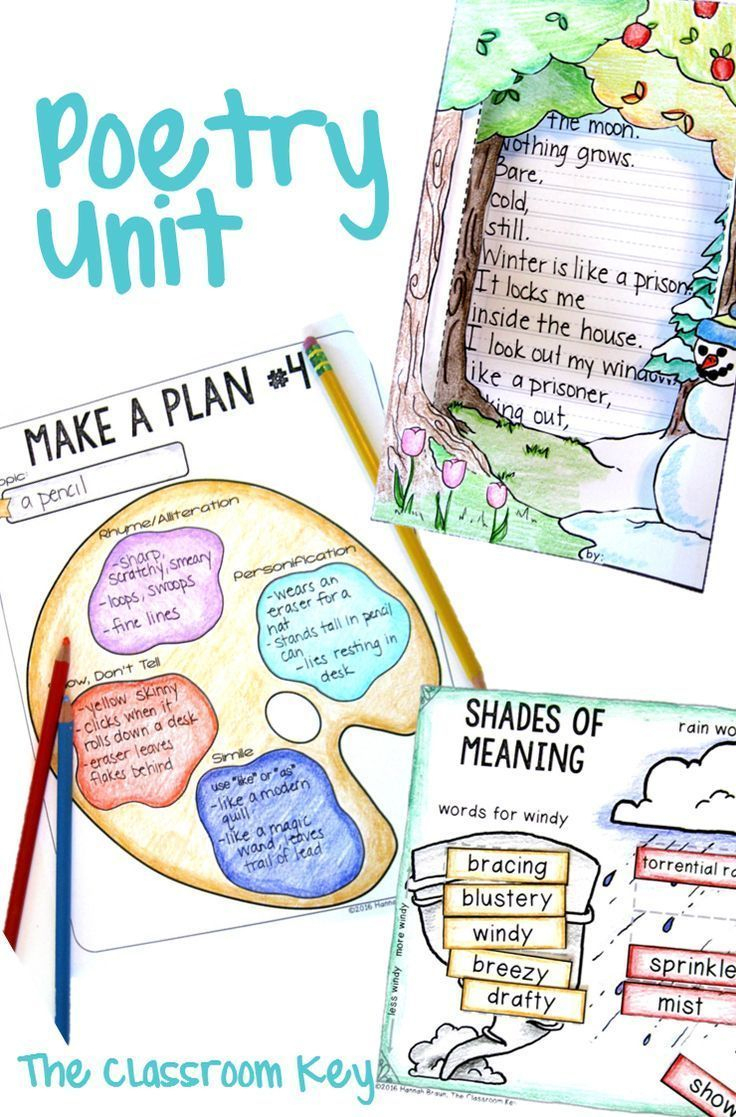 Poetry
Unit
the moon.
Nothing grows.
Bare,
cold,
still.
Winter is like a prison.
It locks me
inside the house.
I look out my window
like a prisoner,
king out,
by:
MAKE A PLAN #4
opic:
a pencil
Rhyme/Alliteration
-sharp,
scratchy, smeary
-loops, swoops
-fine lines
Personification
-wears an
eraser for a
hat
-stands tall in pencil
can
-lies resting in
desk
ow, Don't Tell
-yellow skinny
-clicks when it
rolls down a desk
-eraser leaves
flakes behind
Simile
use "like" or "as"
-like a modern
quill
-like a magic
wand, leaves
trail of lead
©2016 Hannah
SHADES OF
MEANING
rain wo
words for windy
bracing
blustery
windy
breezy
drafty
less windy more windy
torrential ra
sprinkle
mist
show
©2016 Hannah Braun, The Classroom Key
The Classroom Key